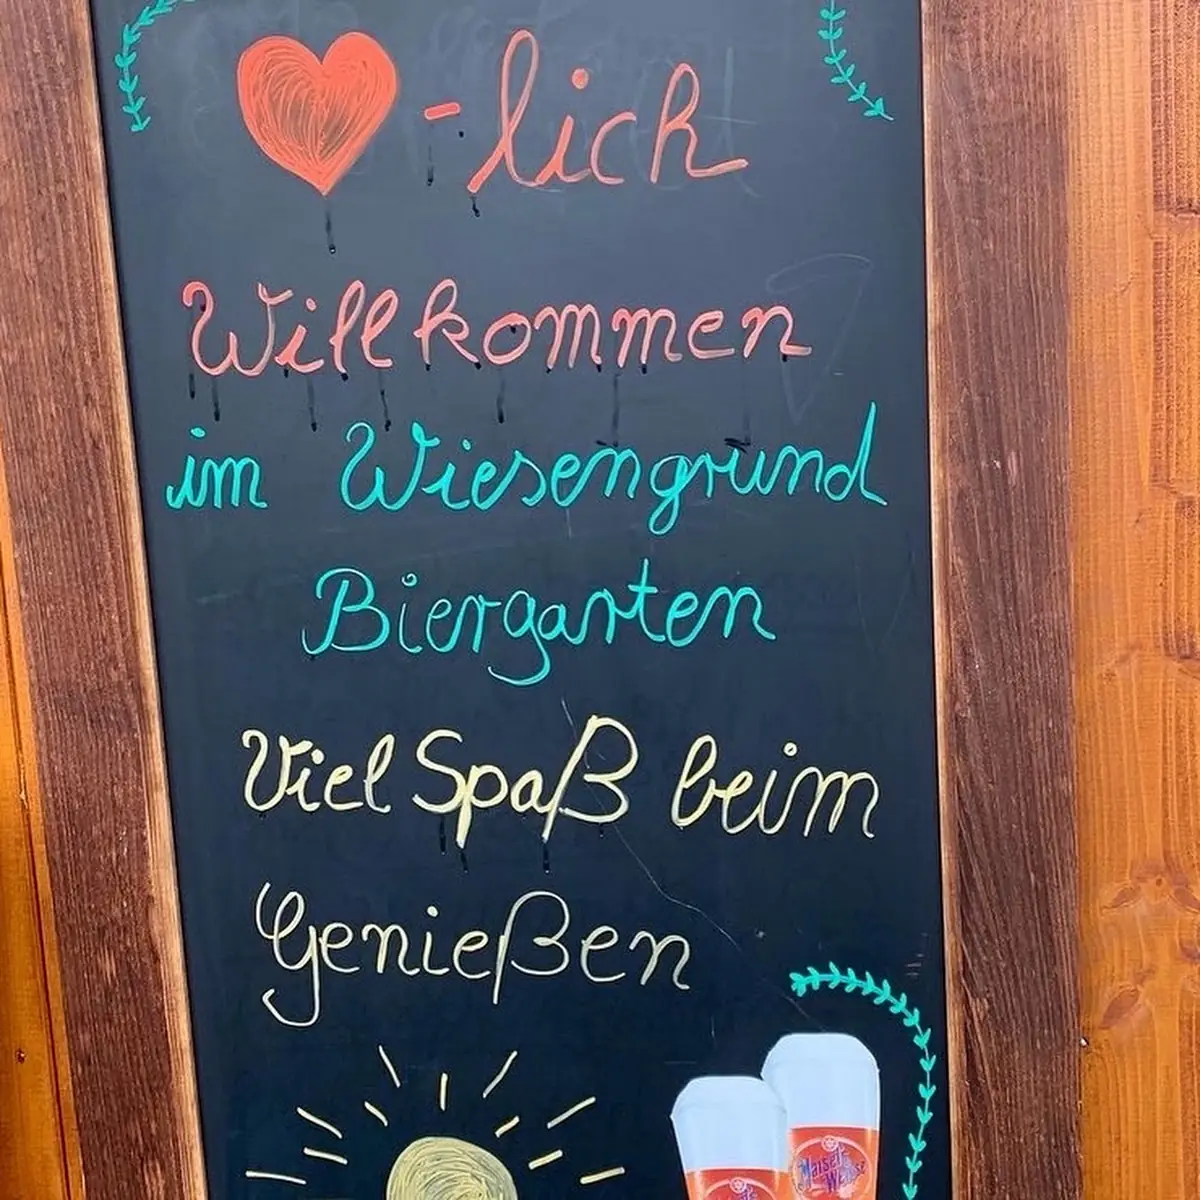 ❤-lich
Willkommen
im Wiesengrund
Biergarten
Viel Spaß beim
Genießen
Maisel's
Weisse